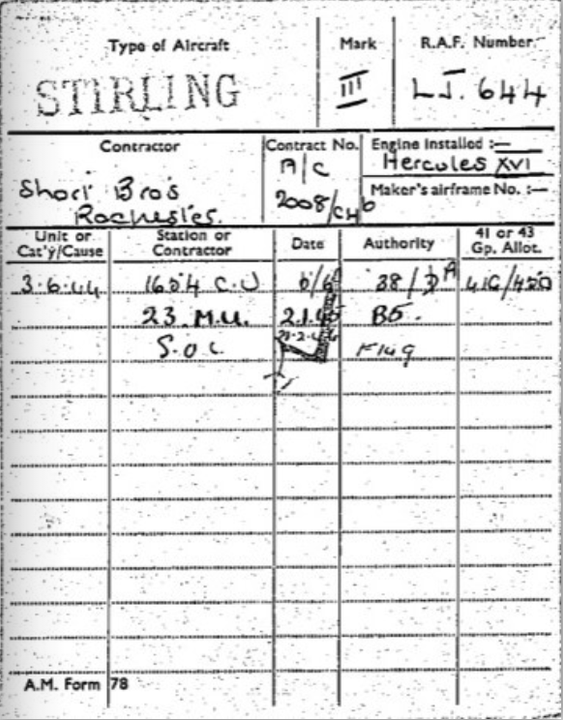 Type of Aircraft Mark R.A.F. Number
STIRLING III LJ.644
Contractor Contract No. Engine Installed :—
Short Bro's A/C Hercules XVI
Rochester 2008/CH6 Maker's airframe No. :—
Unit or Cat'y/Cause Station or Contractor Date Authority 41 or 43 Gp. Allot.
3.6.44 1654 C.U 38/
23. M.U. B5.
S.O.C F149
A.M. Form 78